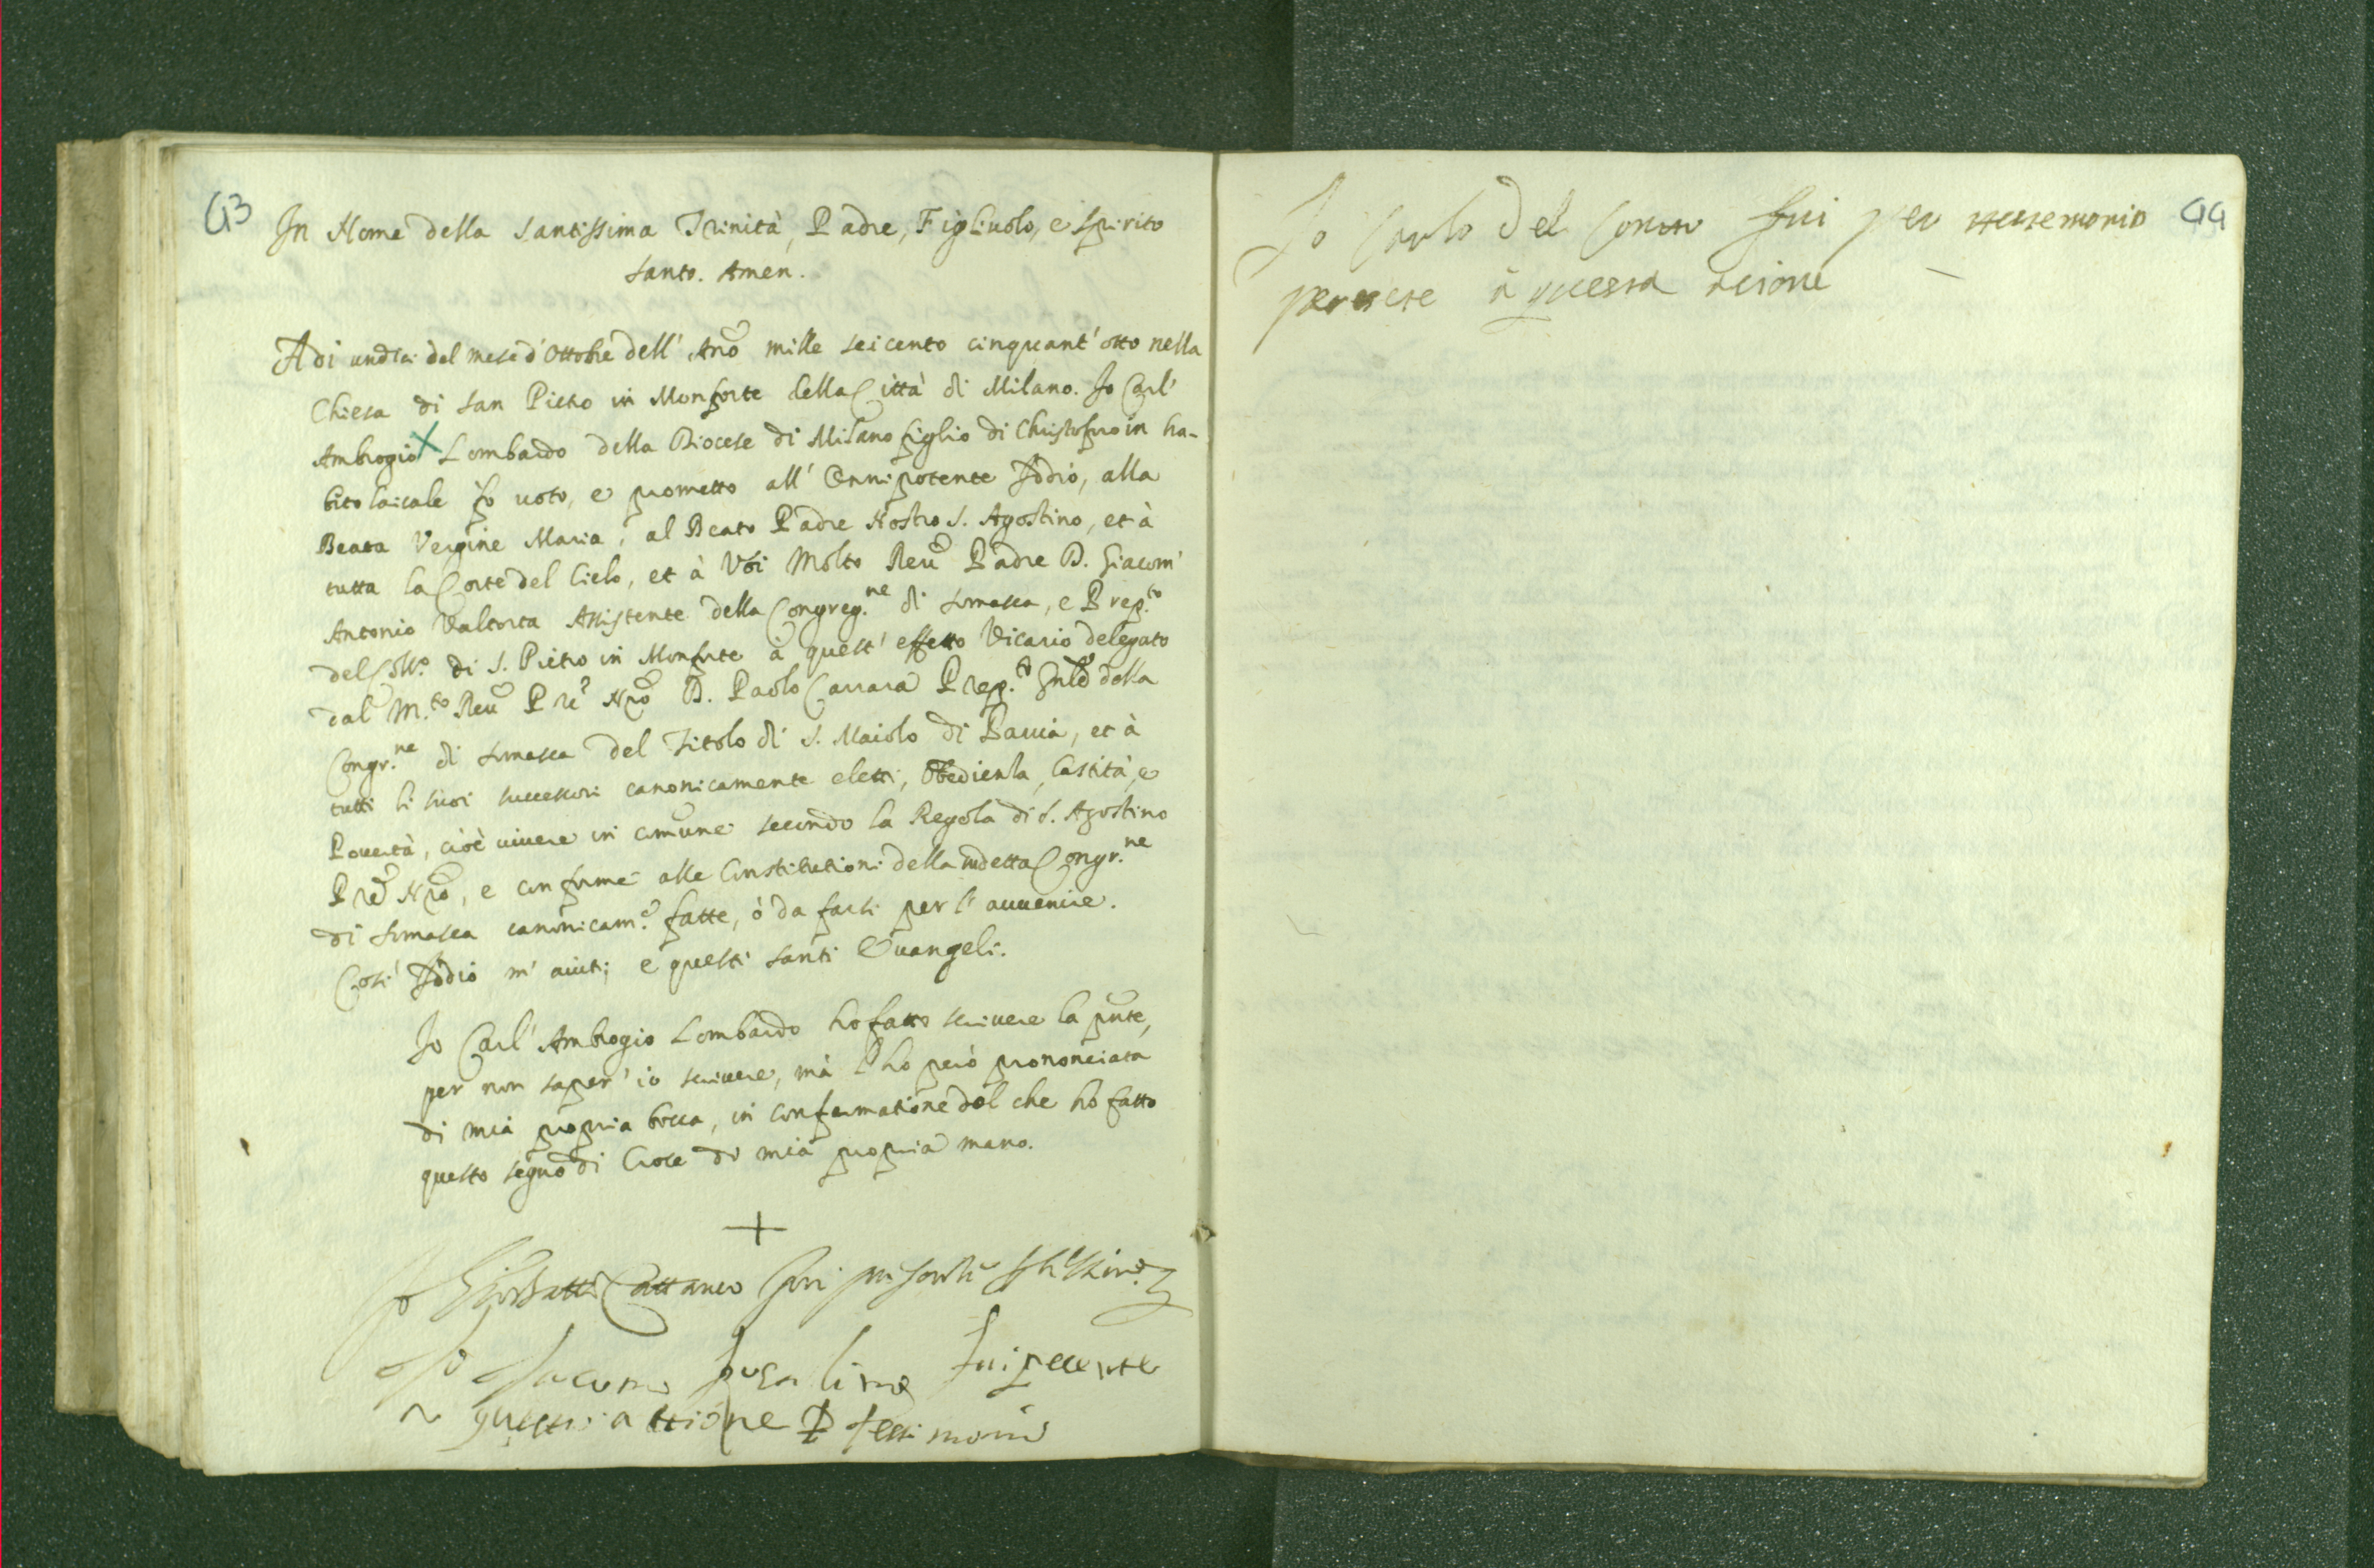 43
In Nome della Santissima Trinità, Padre, Figliuolo, e Spirito
Santo. Amen.
Adi undici del mese d'Ottobre dell' Año mille seicento cinquant'otto nella
Chiesa di San Pietro in Monforte della Città di Milano. Io Carl'
Ambrogio Lombardo della Diocese di Milano figlio di Christoforo in ha-
bito laicale fo voto, e prometto all' Onnipotente Iddio, alla
Beata Vergine Maria, al Beato Padre Nostro S. Agostino, et à
tutta la Corte del Cielo, et à Voi Molto Reu Padre D. Giacom'
Antonio Valtorta Assistente della Congreg.ne di Somasca, e Prep.to
del Coll.o di S. Pietro in Monforte à quest' effetto Vicario delegato
dal M.to Reu Pre Nro D. Paolo Carrara Prep.to Gnle della
Congr.ne di Somasca del Titolo di S. Maiolo di Pauia, et à
tutti li suoi successori canonicamente eletti, Obedienza, Castità, e
Pouertà, cioè uiuere in comune secondo la Regola di S. Agostino
Pre Nro, e conforme alle Constitutioni della sudetta Congr.ne
di Somasca canonicam.e fatte, ò da farsi per l'auuenire.
Così Iddio m'aiuti, e questi santi Euangeli.
Io Carl' Ambrogio Lombardo ho fatto scriuere la pnte,
per non saper' io scriuere, mà l'ho però prononciata
di mia propria bocca, in confermatione del che hò fatto
questo segno di Croce di mia propria mano.
+
Io Gio Batta Cattaneo fui presente
Io Jacomo fui presente
questa attione testimonio
44
Io Carlo Del Conte fui per testemonio
presete à questa acione